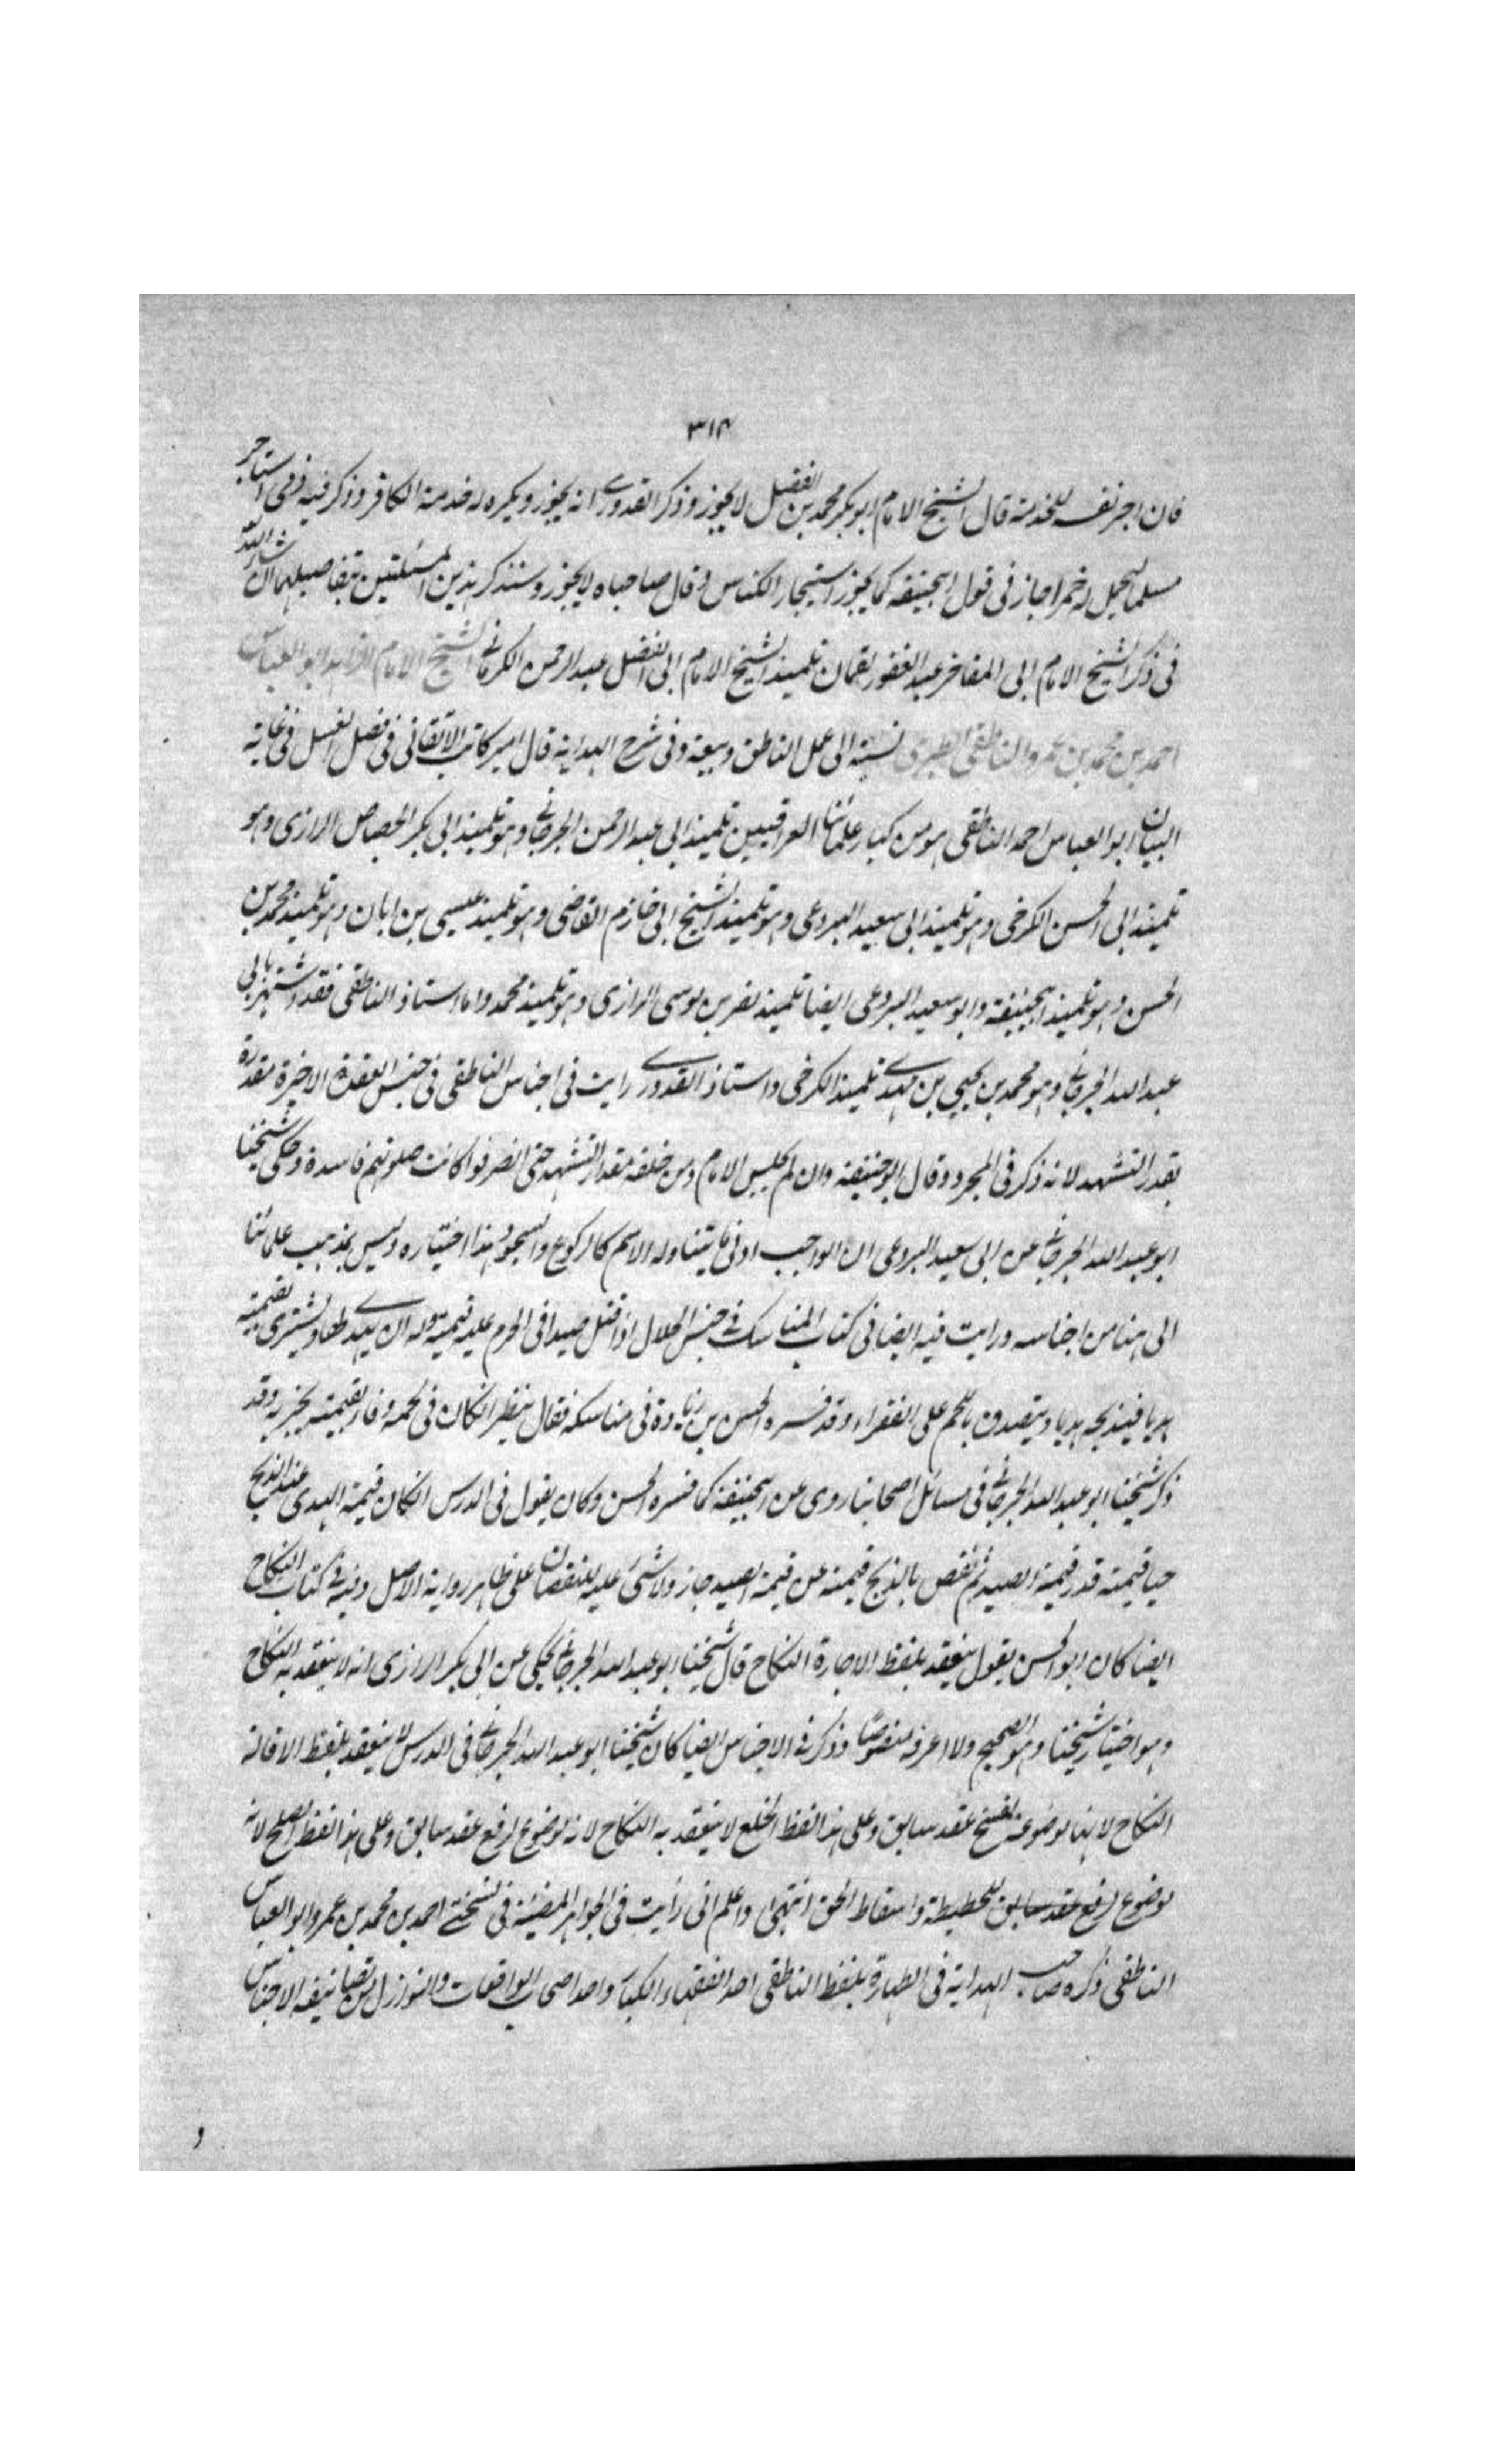 ٣١٣
فان اجر نفسه للخدمة قال الشيخ الامام ابو بكر محمد بن الفضل لا يجوز وذكر القدورى انه يجوز ويكره له خدمة الكافر وذكر فيه ذمى استاجر
مسلما ليحمل له خمرا جاز فى قول ابيحنيفة كما يجوز استيجار الكناس وقال صاحباه لا يجوز وسنذكر هذين المسئلتين بتفاصيلهما ان شاء الله
فى ذكر الشيخ الامام ابى المفاخر عبد الغفور لقمان تلميذ الشيخ الامام ابى الفضل عبد الرحمن الكرمانى الشيخ الامام الزاهد ابو العباس
احمد بن محمد بن عمرو الناطفى الطبرى نسبته الى عمل الناطف وبيعه وفى شرح الهداية قال امير كاتب الاتقانى فى فصل الغسل فى غاية
البيان ابو العباس احمد الناطفى هو من كبار علمائنا العراقيين تلميذ ابى عبد الرحمن الجرجانى وهو تلميذ ابى بكر الجصاص الرازى وهو
تلميذ ابى الحسن الكرخى وهو تلميذ ابى سعيد البردعى وهو تلميذ الشيخ ابى خازم القاضى وهو تلميذ عيسى بن ابان وهو تلميذ محمد بن
الحسن وهو تلميذ ابيحنيفة وابو سعيد البردعى ايضا تلميذ نصر بن موسى الرازى وهو تلميذ محمد واما استاذ الناطفى فقد اشتهر بابى
عبد الله الجرجانى وهو محمد بن يحيى بن مهدى تلميذ الكرخى واستاذ القدورى رايت فى اجناس الناطفى فى جنس القعدة الاخيرة مقدرة
بقدر التشهد لانه ذكر فى المجرد وقال ابو حنيفة وان لم يجلس الامام ومن خلفه مقدار التشهد حتى انصرفوا كانت صلوتهم فاسدة وحكى شيخنا
ابو عبد الله الجرجانى عن ابى سعيد البردعى ان الواجب ادنى ما يتناوله الاسم كالركوع والسجود هذا اختياره وليس بمذهب علمائنا
الى هنا من اجناسه ورايت فيه ايضا فى كتاب المناسك فى جنس الحلال اذا قتل صيدا فى الحرم عليه قيمته وله ان يهدى طعاما ويشترى بقيمته
هديا فيذبحه هديا ويتصدق باللحم على الفقراء وقد فسره الحسن بن زياد فى مناسكه فقال ينظر ان كان فى لحمه وفاء بقيمته يجزيه وقد
ذكر شيخنا ابو عبد الله الجرجانى فى مسائل اصحابنا روى عن ابيحنيفة كما فسره الحسن وكان يقول فى الدرس ان كان قيمة الهدى عند الذبح
حيا قيمته قدر قيمة الصيد ثم نقص بالذبح قيمته عن قيمة الصيد جاز ولا شئ عليه للنقصان على ظاهر رواية الاصل وفيه فى كتاب النكاح
ايضا كان ابو الحسن يقول ينعقد بلفظ الاجارة النكاح قال شيخنا ابو عبد الله الجرجانى يحكى عن ابى بكر الرازى انه لا ينعقد به النكاح
وهو اختيار شيخنا وهو الصحيح ولا اعرفه منصوصًا وذكر فى الاجناس ايضا كان شيخنا ابو عبد الله الجرجانى فى الدرس لا ينعقد بلفظ الاقالة
النكاح لانها موضوعة لفسخ عقد سابق وعلى هذا لفظ الخلع لا ينعقد به النكاح لانه موضوع لرفع عقد سابق وعلى هذا لفظ الصلح لانه
موضوع لرفع عقد سابق للحطيطة واسقاط الحق انتهى واعلم انى رأيت فى الجواهر المضيئة فى نسختى احمد بن محمد بن عمرو ابو العباس
الناطفى ذكره صاحب الهداية فى الطهارة بلفظ الناطفى احد الفقهاء الكبار واحد اصحاب الواقعات والنوازل من تصانيفه الاجناس
و